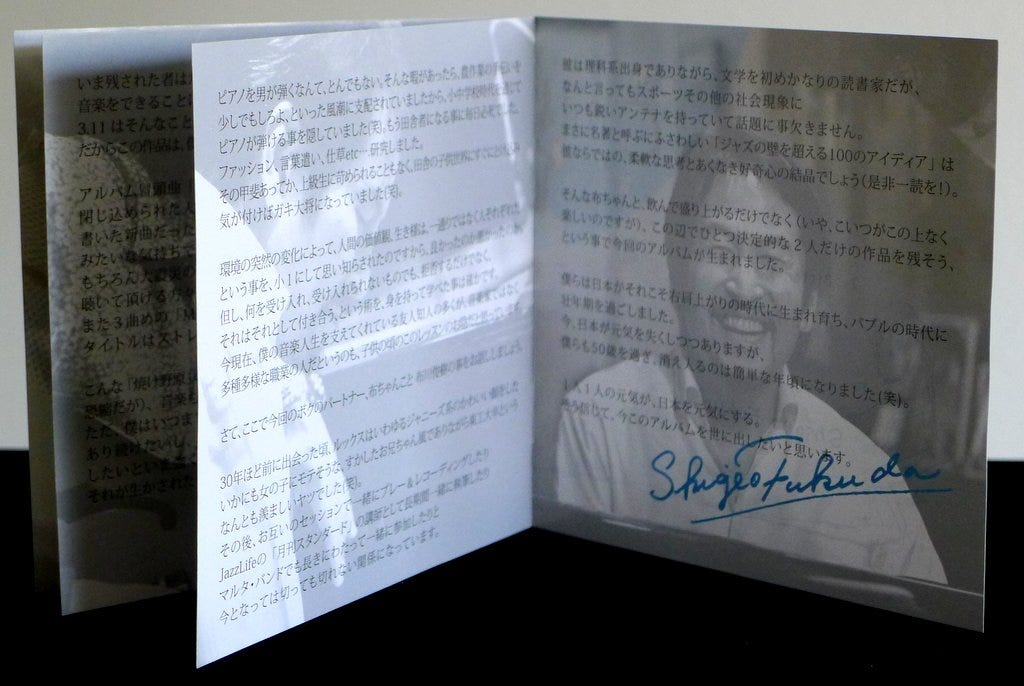 いま残された者は
音楽をできること
3.11 はそんなこと
だからこの作品は、
アルバム冒頭曲
閉じ込められた人
書いた新曲だった
みたいな気持ちで
もちろん大震災の
聴いて頂ける方が
また3曲めの、「M
タイトルはストレ
こんな「焼け野原
恐縮だが)、音楽も
ただ、僕はいつま
あり続けたいし、
したいといま
それが生かされた
ピアノを男が弾くなんて、とんでもない。そんな暇があったら、農作業の手伝いを
少しでもしろよ、といった風潮に支配されていましたから、小中学校時代を通じて
ピアノが弾ける事を隠していました(笑)。もう田舎者になる事に毎日必死でした。
ファッション、言葉遣い、仕草etc…研究しました。
その甲斐あってか、上級生に苛められることもなく、田舎の子供世界にすぐにとけ込み
気が付けばガキ大将になっていました(笑)。
環境の突然の変化によって、人間の価値観、生き様は、一通りではなく人それぞれだ
という事を、小1にして思い知らされたのですから、良かったのか悪かったのか。
但し、何を受け入れ、受け入れられないものでも、拒否するだけでなく、
それはそれとして付き合う、という術を、身を持って学べた事は確かです。
今現在、僕の音楽人生を支えてくれている友人知人の多くが、音楽家ではなく
多種多様な職業の人だというのも、子供の頃のこのレッスンのお陰だと思っています。
さて、ここで今回のボクのパートナー、布ちゃんこと 布川俊樹の事をお話ししましょう。
30年ほど前に出会った頃、ルックスはいわゆるジャニーズ系のかわいい顔をした
いかにも女の子にモテそうな、すかしたお兄ちゃん風でありながら東工大卒という
なんとも羨ましいヤツでした(笑)。
その後、お互いのセッションで一緒にプレー&レコーディングしたり
JazzLifeの「月刊スタンダード」の講師として長期間一緒に執筆したり
マルタ・バンドでも長きにわたって一緒に参加したりと
今となっては切っても切れない関係になっています。
彼は理科系出身でありながら、文学を初めかなりの読書家だが、
なんと言ってもスポーツその他の社会現象に
いつも鋭いアンテナを持っていて話題に事欠きません。
まさに名著と呼ぶにふさわしい「ジャズの壁を超える100のアイディア」は
彼ならではの、柔軟な思考とあくなき好奇心の結晶でしょう(是非一読を!)。
そんな布ちゃんと、飲んで盛り上がるだけでなく(いや、こいつがこの上なく
楽しいのですが)、この辺でひとつ決定的な2人だけの作品を残そう、
という事で今回のアルバムが生まれました。
僕らは日本がそれこそ右肩上がりの時代に生まれ育ち、バブルの時代に
壮年期を過ごしました。
今、日本が元気を失くしつつありますが、
僕らも50歳を過ぎ、消え入るのは簡単な年頃になりました(笑)。
1人1人の元気が、日本を元気にする。
そう信じて、今このアルバムを世に出したいと思います。
Shigeo Fukuda